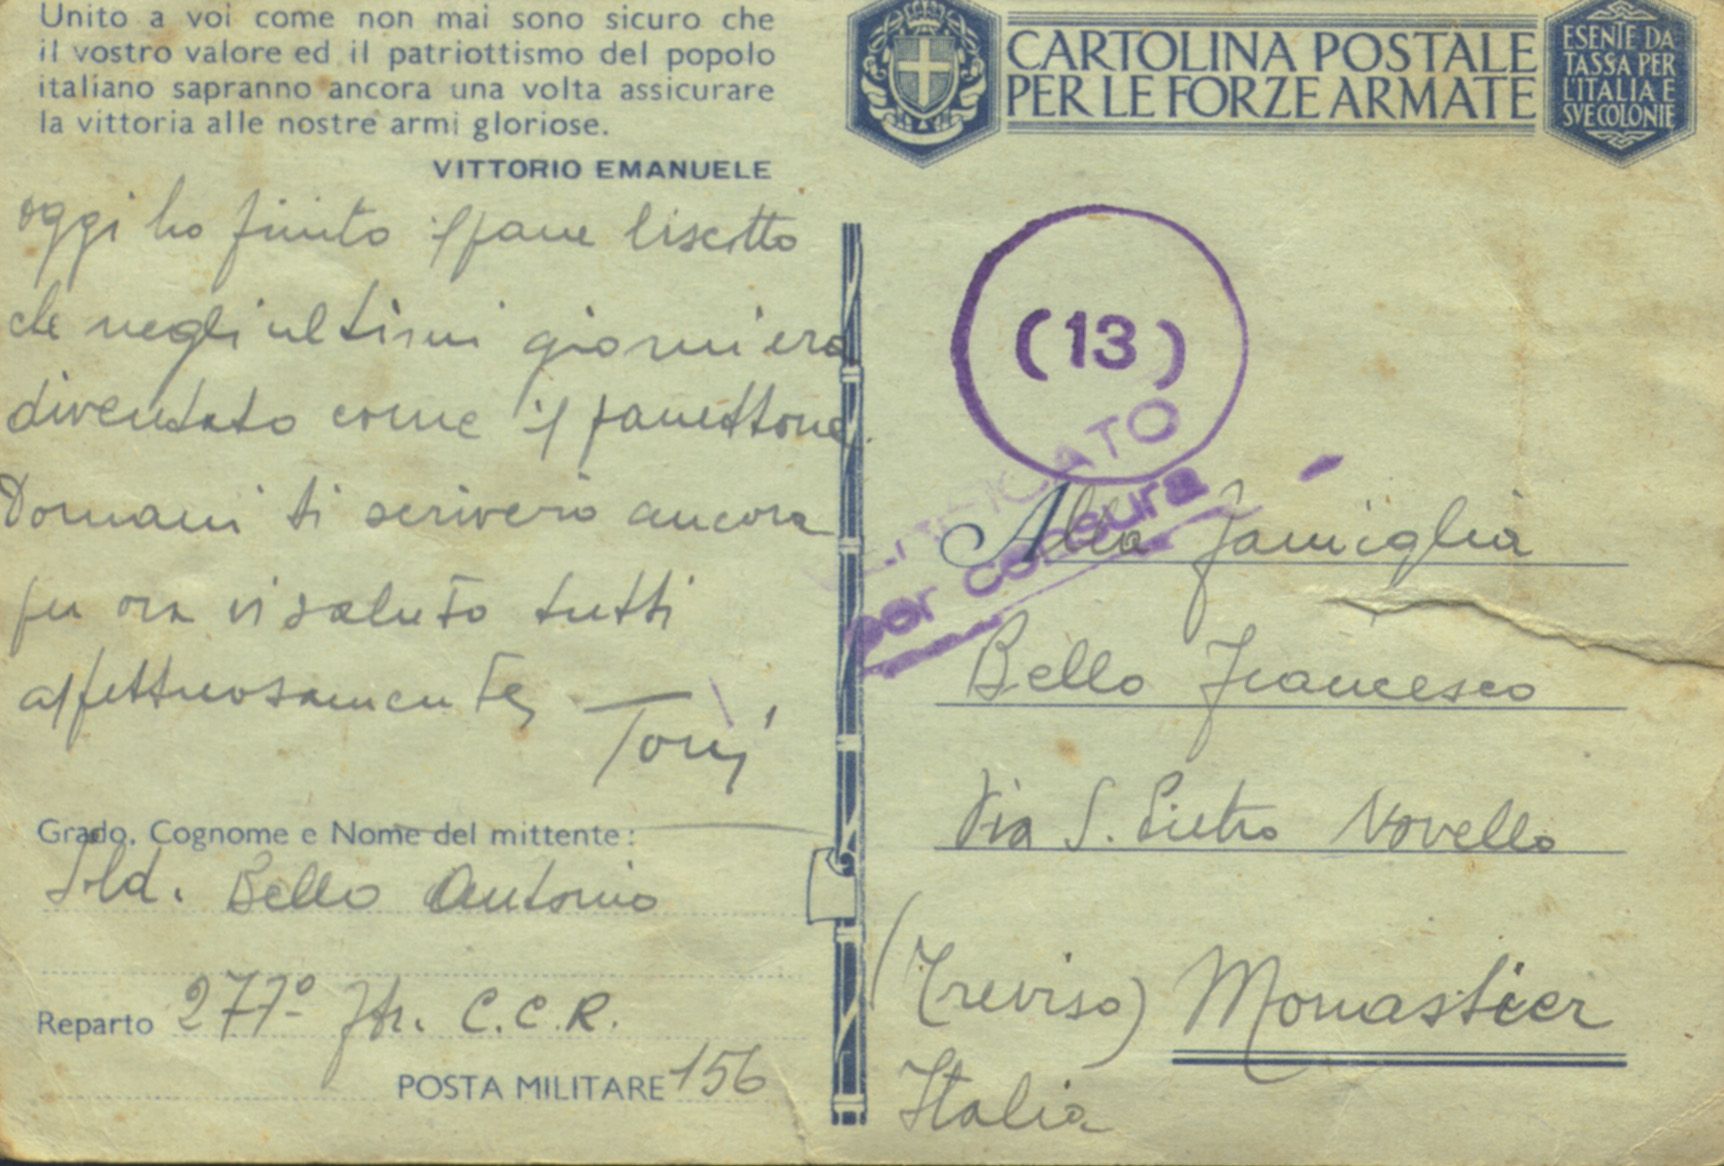 Unito a voi come non mai sono sicuro che
il vostro valore ed il patriottismo del popolo
italiano sapranno ancora una volta assicurare
la vittoria alle nostre armi gloriose.
VITTORIO EMANUELE
oggi ho finito il pane biscotto
che negli ultimi giorni era
diventato come il panettone.
Domani ti scriverò ancora
per ora vi saluto tutti
affettuosamente
Toni
Grado, Cognome e Nome del mittente:
Sld. Bello Antonio
Reparto 277º Ftr. C.C.R.
POSTA MILITARE 156
CARTOLINA POSTALE
PER LE FORZE ARMATE
ESENTE DA
TASSA PER
L'ITALIA E
SVE COLONIE
(13)
VERIFICATO
per censura
Alla famiglia
Bello Francesco
Via S. Pietro Novello
(Treviso) Monastier
Italia